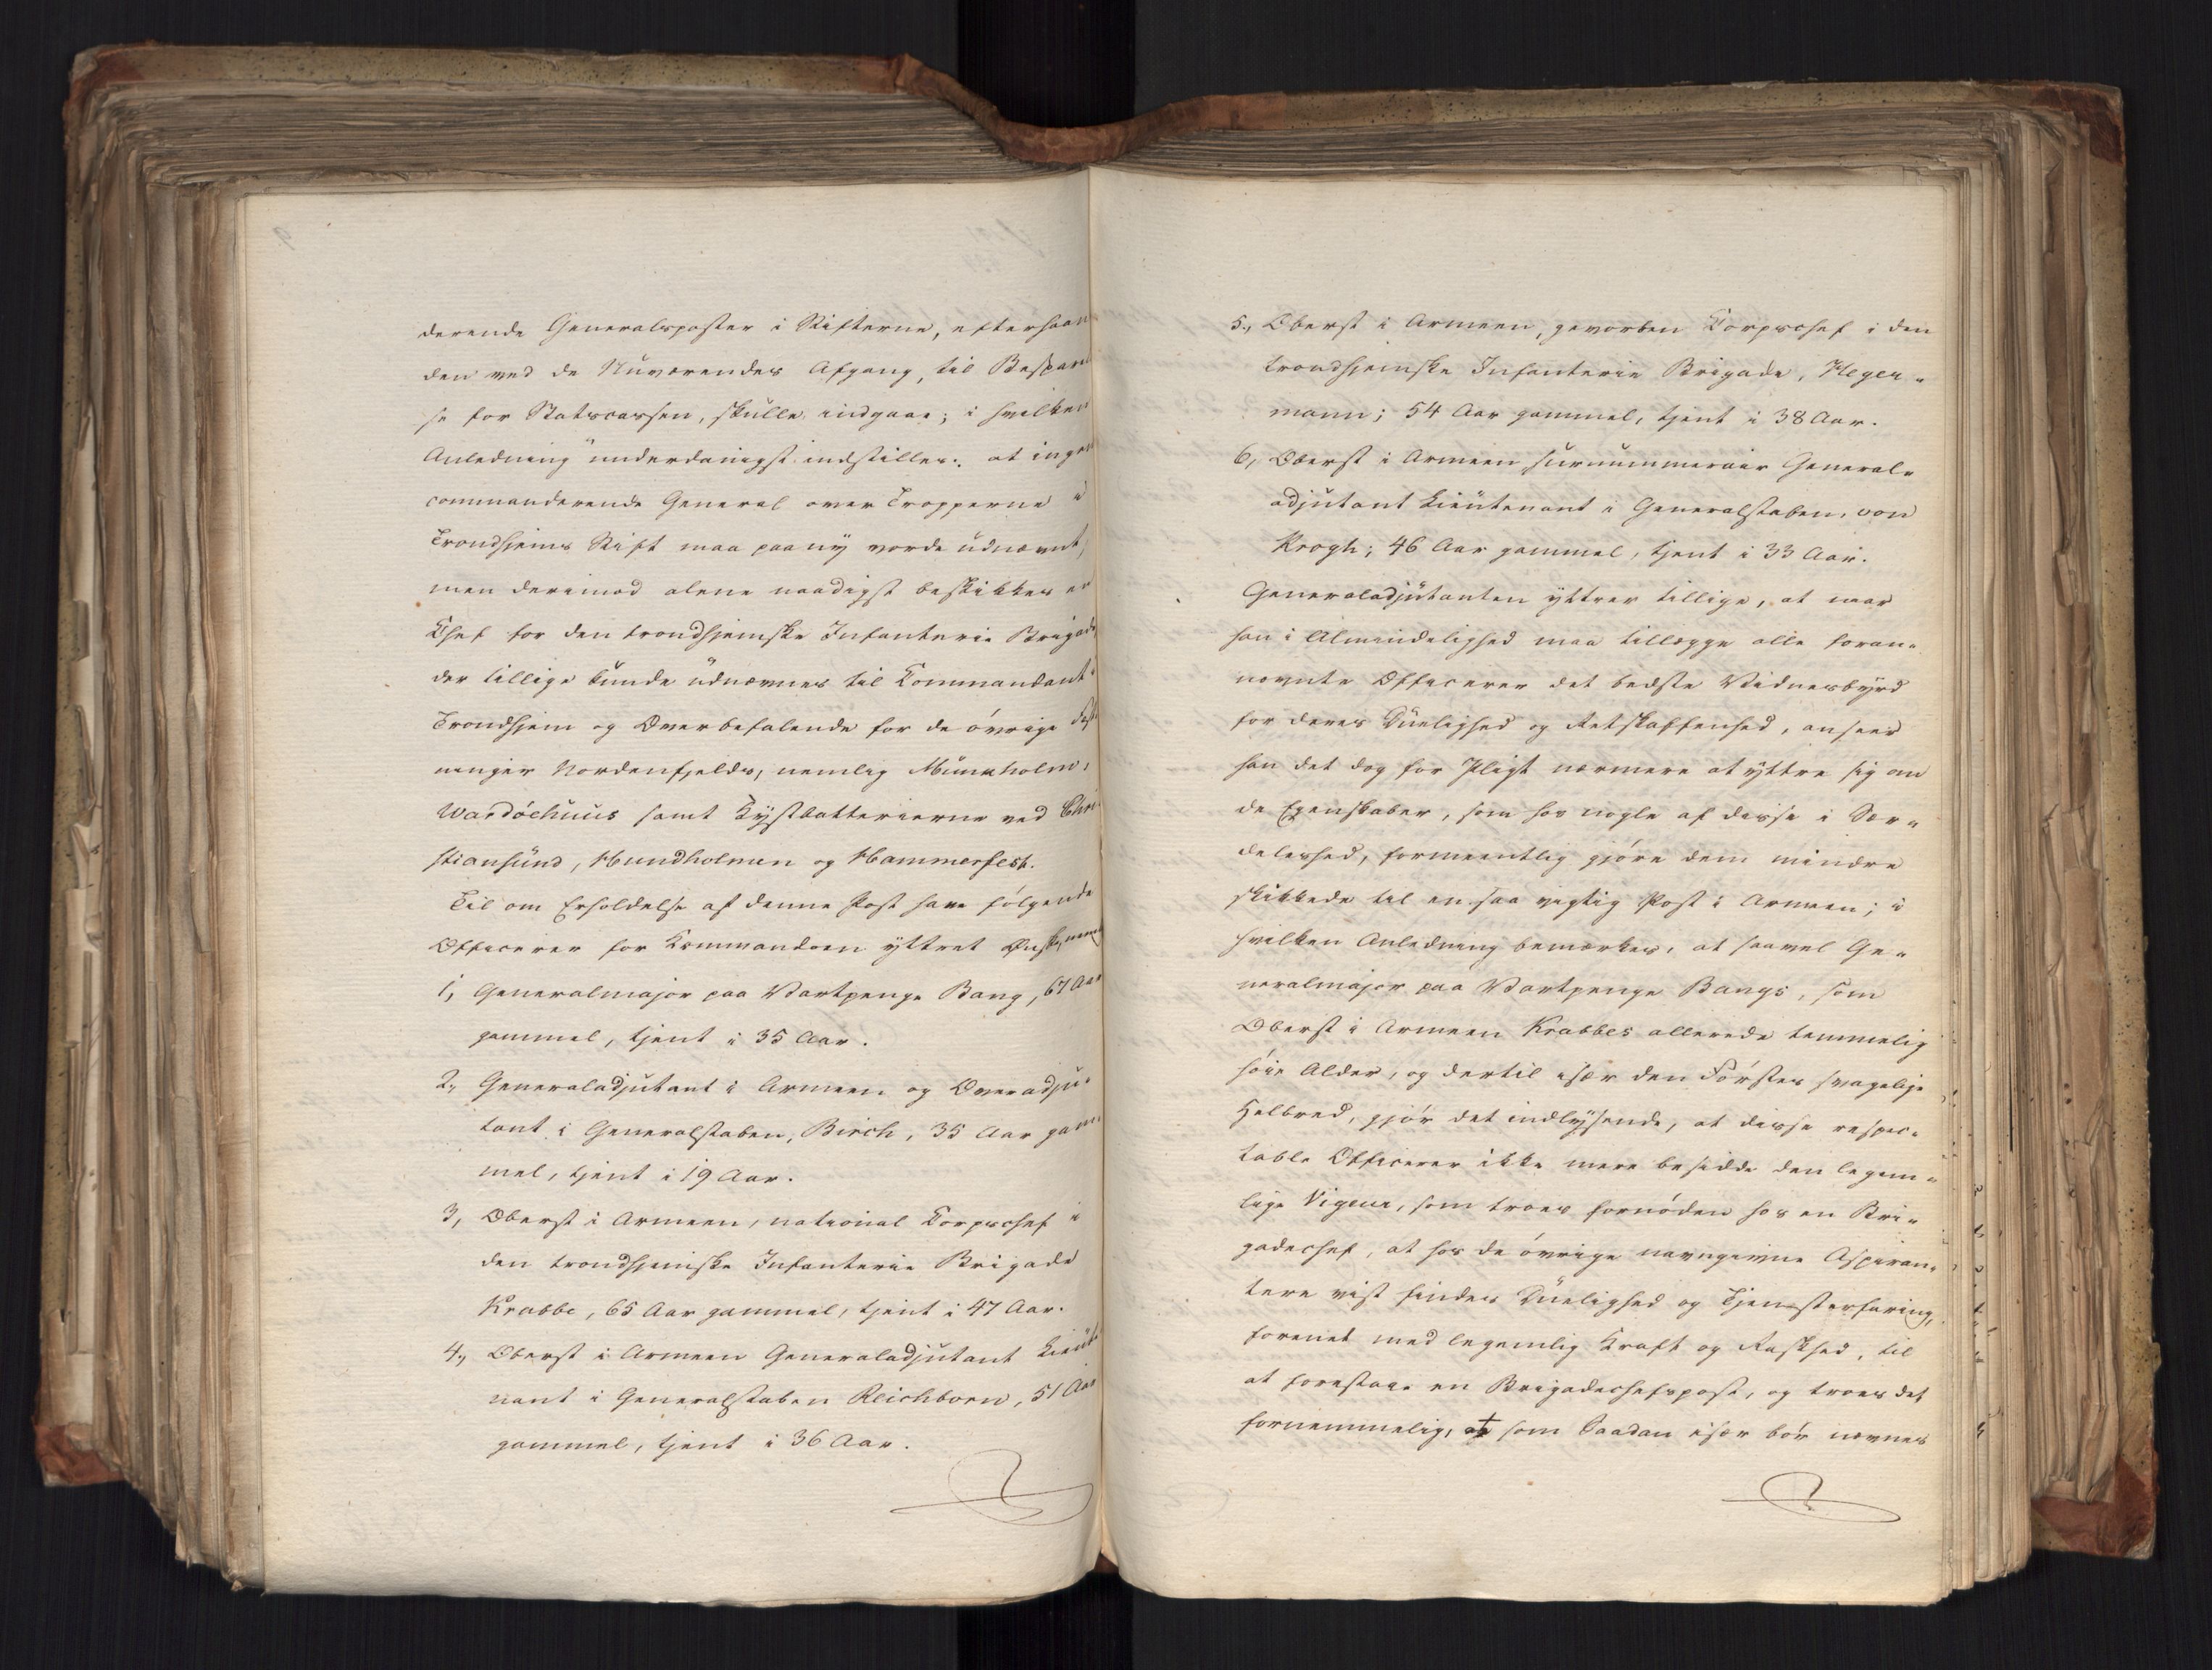 derende Generalsposter i Stifterne, efterhaan
den ved de Nuværendes Afgang, til Bespare
se for Statscassen, skulle indgaae; i hvilken
Anledning underdanigst indstilles: at ingen
commanderende General over Tropperne i
Trondhjems Stift maa paany vorde udnævnt,
men derimod alene naadigst beskikkes en
Chef for den trondhjemske Infanterie Brigade
der tillige kunde udnævnes til Commandant i
Trondhjem og Overbefalende for de øvrige Fæst
ninger Nordenfjelds, nemlig Munkholm,
Wardöehuus samt Kystbatterierne ved Chri
stiansund, Hundholmen og Hammerfest.
Til om Erholdelse af denne Post have følgende
Officerer for Kommandoen yttret Ønske, nemlig
1, Generalmajor paa Vartpenge Bang, 67 Aar
gammel, tjent i 35 Aar.
2, Generaladjutant i Armeen og Overadju-
tant i Generalstaben, Birch, 35 Aar gam-
mel, tjent i 19 Aar.
3, Oberst i Armeen, national Corpschef i
den trondhjemske Infanterie Brigade
Krabbe, 65 Aar gammel, tjent i 47 Aar.
4, Oberst i Armeen Generaladjutant Lieute
nant i Generalstaben Reichborn, 51 Aar
gammel, tjent i 36 Aar.
5, Oberst i Armeen, geworben Corpschef i den
trondhjemske Infanterie Brigade, Heger-
mann; 54 Aar gammel, tjent i 38 Aar.
6, Oberst i Armeen surnummerair General-
adjutant Lieutenant i Generalstaben, von
Krogh; 46 Aar gammel, tjent i 33 Aar.
Generaladjutanten yttrer tillige, at naar
han i Almindelighed maa tillægge alle foran-
nævnte Officerer det bedste Vidnesbyrd
for deres Duelighed og Retskaffenhed, anseer
han det dog for Pligt nærmere at yttre sig om
de Egenskaber, som hos nogle af disse i Sær-
deleshed, formeentlig gjøre dem mindre
skikkede til en saa vigtig Post i Armeen; i
hvilken Anledning bemærkes, at saavel Ge-
neralmajor paa Vartpenge Bangs, som
Oberst i Armeen Krabbes allerede temmelig
høie Alder, og dertil især den Førstes svagelige
Helbred, gjør det indlysende, at disse respec-
table Officerer ikke mere besidde den legem-
lige Vigeur, som troes fornøden hos en Bri-
gadechef, at hos de øvrige navngivne Aspiran-
tere vist findes Duelighed og Tjensterfaring,
forenet med legemlig Kraft og Raskhed, til
at forestaae en Brigadechefspost, og troes det
fornemmelig, at som Saadan især bør nævnes